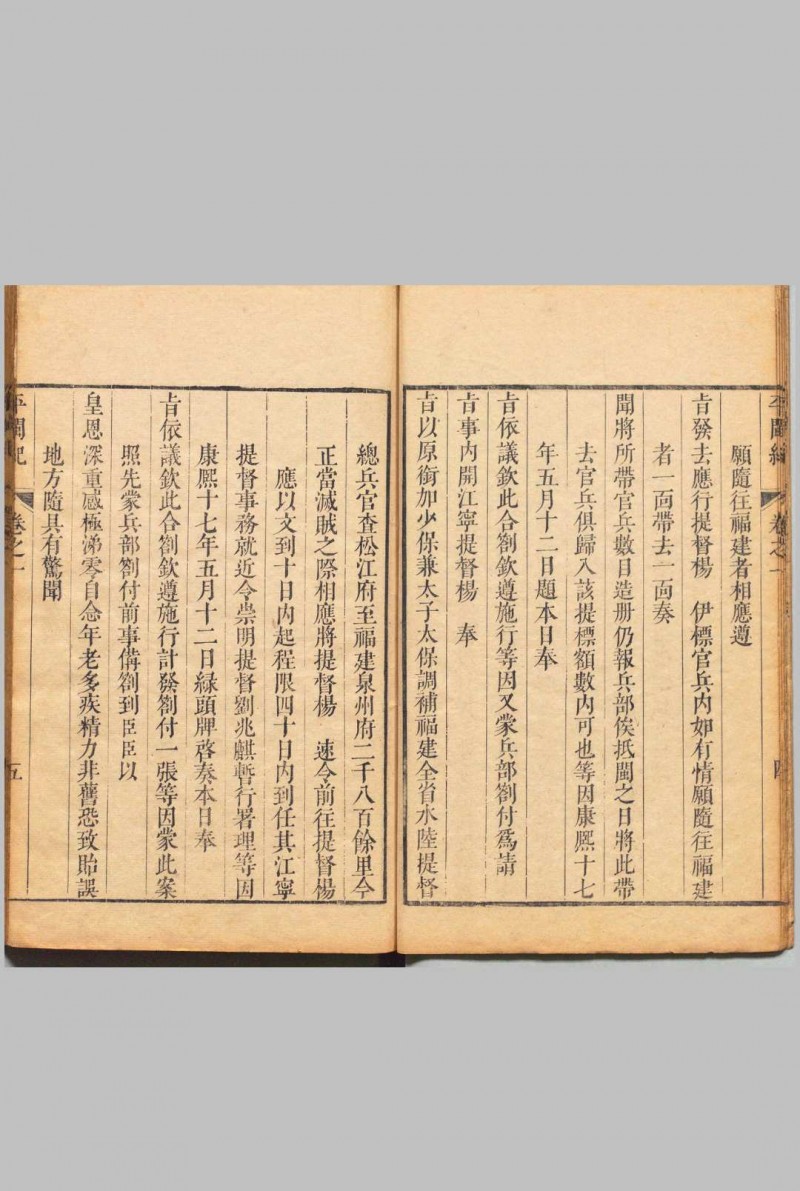 願隨往福建者相應遵
旨發去應行提督楊　伊標官兵內如有情願隨往福建
者一面帶去一面奏
聞將所帶官兵數目造册仍報兵部俟抵閩之日將此帶
去官兵俱歸入該提標額數內可也等因康熙十七
年五月十二日題本日奉
旨依議欽此合劄欽遵施行等因又蒙兵部劄付爲請
旨事內開江寧提督楊　奉
旨以原銜加少保兼太子太保調補福建全省水陸提督
總兵官查松江府至福建泉州府二千八百餘里今
正當滅賊之際相應將提督楊　速令前往提督楊
應以文到十日內起程限四十日內到任其江寧
提督事務就近令崇明提督劉兆麒暫行署理等因
康熙十七年五月十二日綠頭牌啓奏本日奉
旨依議欽此合劄欽遵施行計發劄付一張等因蒙此案
照先蒙兵部劄付前事備劄到臣臣以
皇恩深重感極涕零自念年老多疾精力非舊恐致貽誤
地方隨具有驚聞
平閩紀　卷之一　五